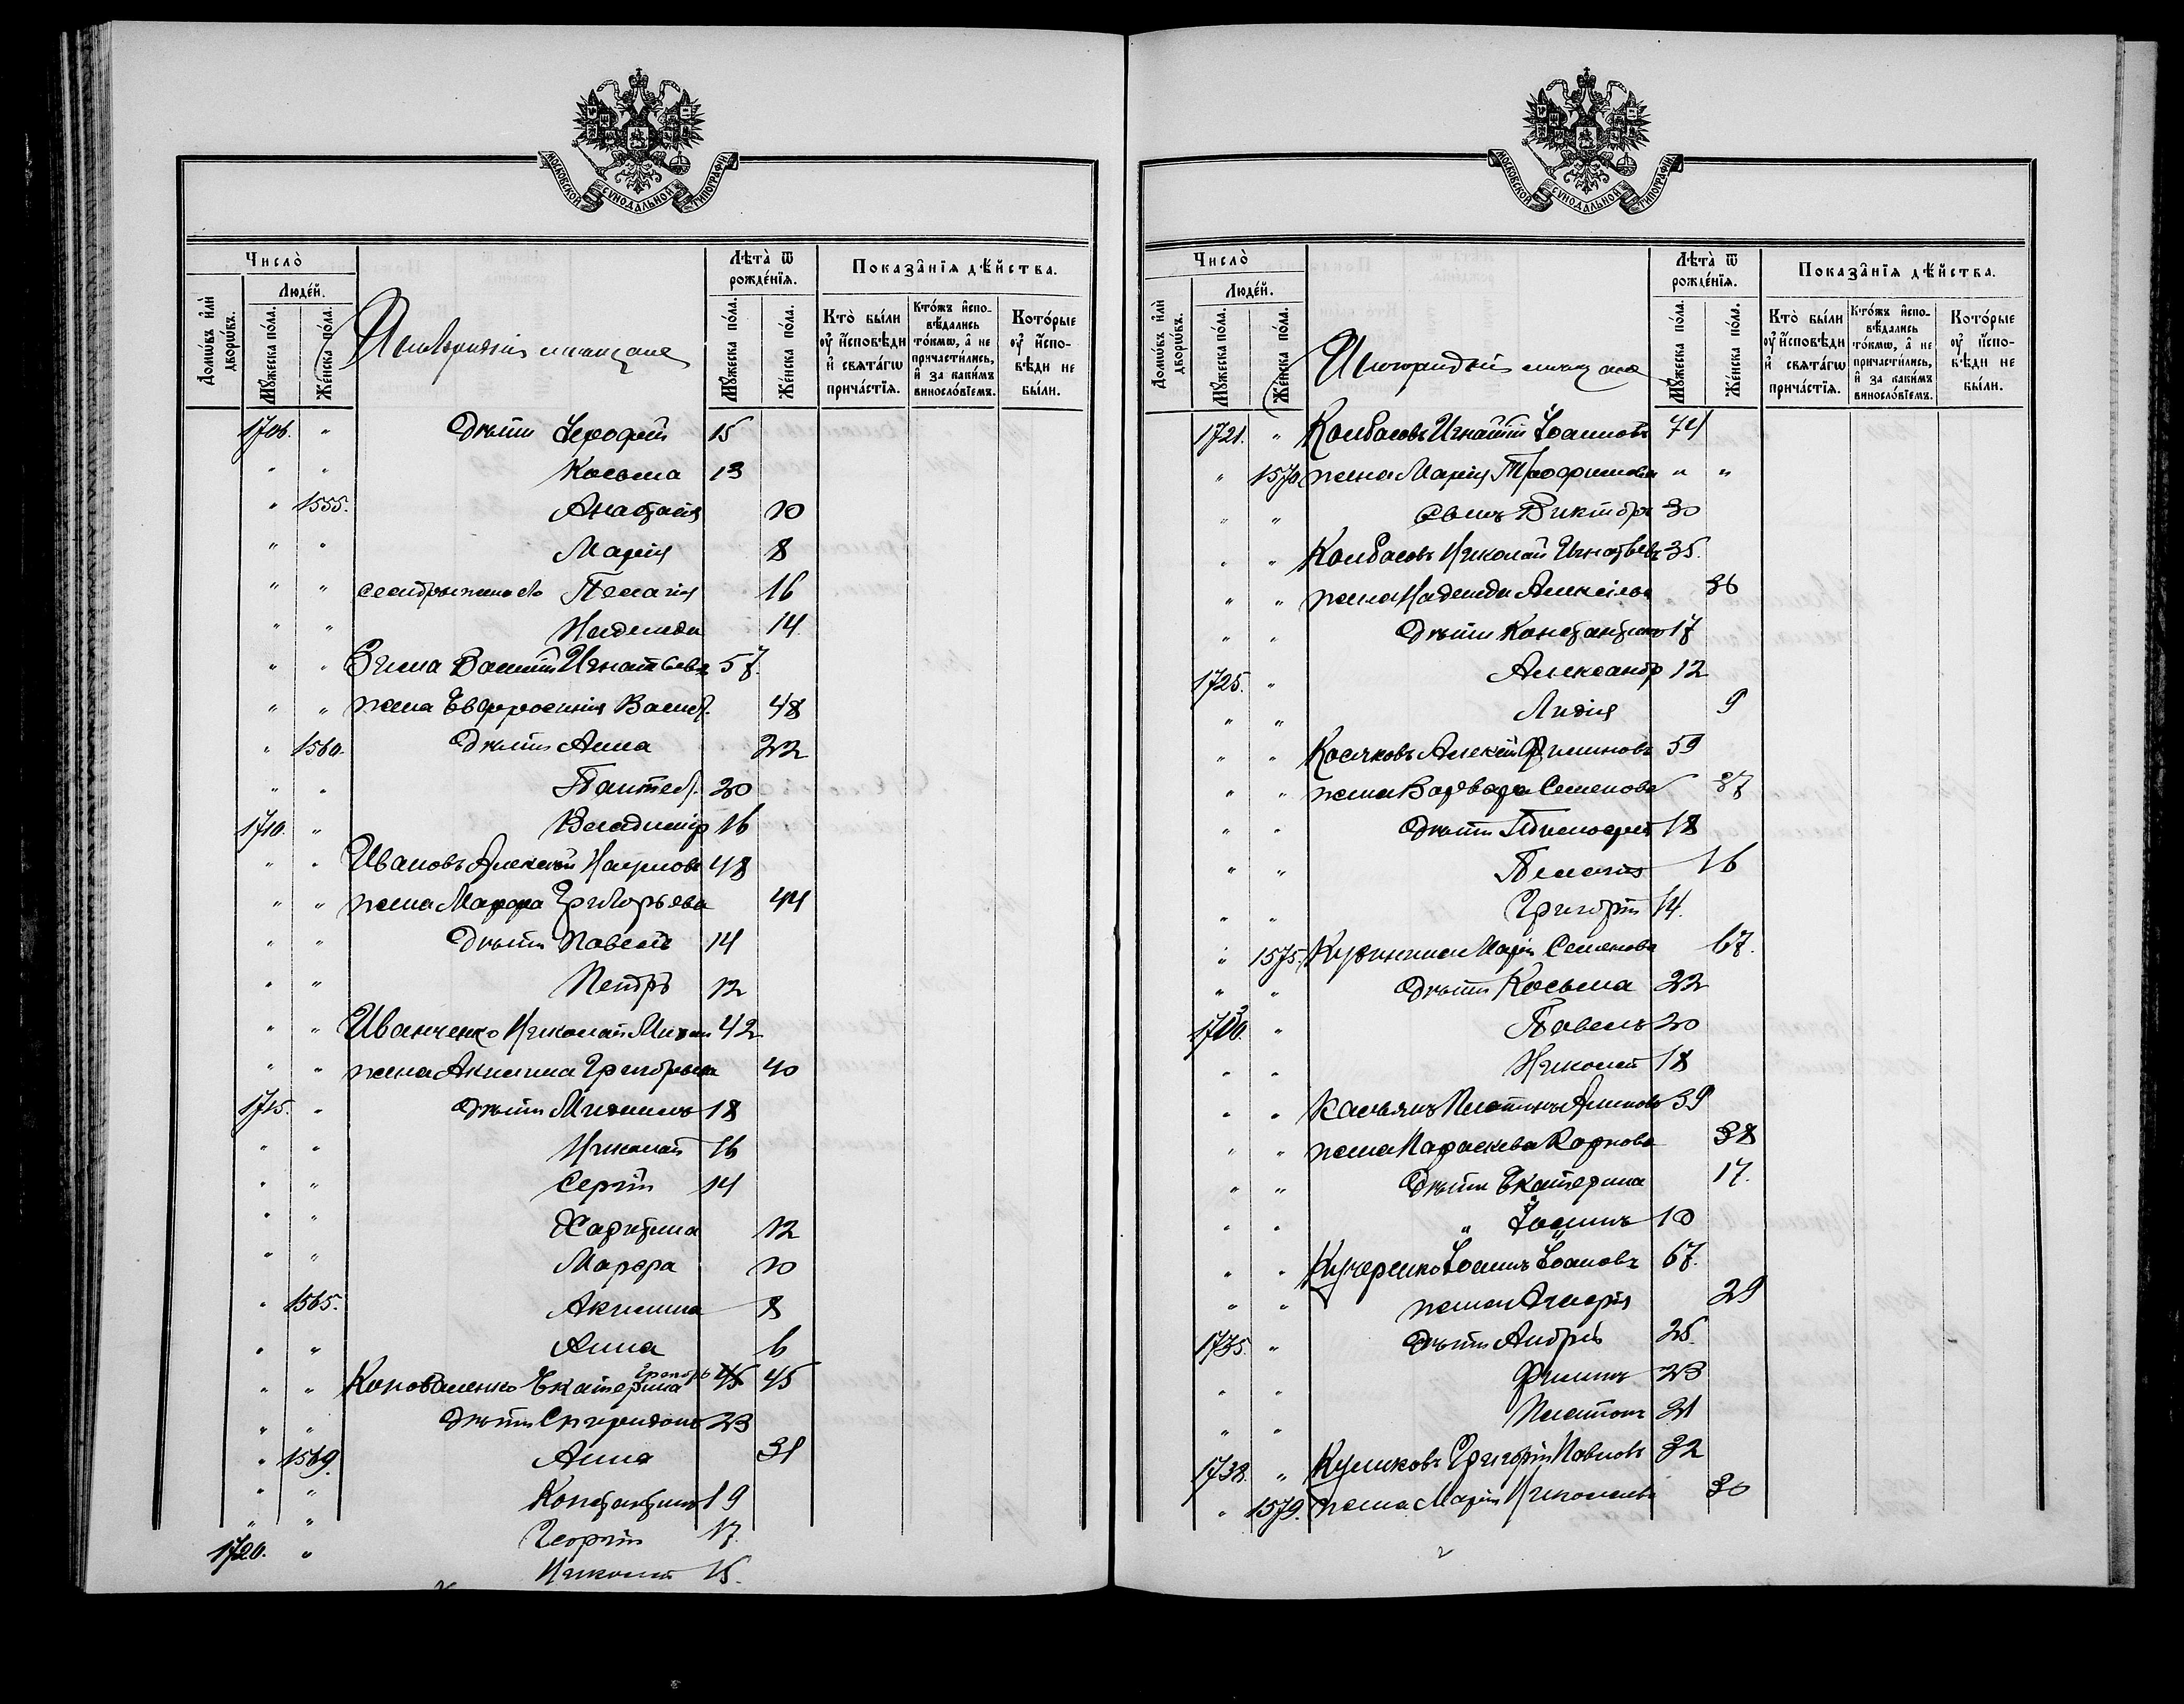 МОСКОВСКОЙ СѴНОДАЛЬНОЙ ТИПОГРАФІИ
Число̀
Людей.
Домѡвъ или дворѡвъ.
Мꙋжеска пола.
Женска пола.
Лѣта̀ ѿ рожденїѧ.
Мꙋжеска пола.
Женска пола.
Показанїѧ дѣйства.
Кто̀ были оу исповѣди и свѧтагѡ причастїѧ.
Ктожъ исповѣдались токмѡ, а не причастились, и за какимъ винословїемъ.
Которые оу исповѣди не были.
Иногородніе мещане
1706. " Дѣти Іерофей 15
" " Косьма 13
" 1555. Анастасія 10
" " Марія 8
" " Пелагія 16
" " Надежда 14
" " Василій Игнатьевъ 57.
" " жена Евфросинія Васил. 48
" 1560. Дѣти Анна 22
" " Пантел. 20
1710. " Владиміръ 16
" " Ивановъ Алексѣй Наумовъ 48
" " жена Марфа Григорьева 44
" " Дѣти Павелъ 14
" " Петръ 12
" " Иванченко Николай Михаи 42
" " жена Акилина Григорьева 40
1715. " Дѣти Михаилъ 18
" " Николай 16
" " Сергій 14
" " Харитина 12
" " Марфа 10
" 1565. Акилина 8
" " Анна 6
" " Коноваленко Екатерина Григорь 45 45
" " Дѣти Спиридонъ 23
" 1569. Анна 21
" " Константинъ 19
" " Георгій 17.
1720. " Николай 15.
МОСКОВСКОЙ СѴНОДАЛЬНОЙ ТИПОГРАФІИ
Число̀
Людей.
Домѡвъ или дворѡвъ.
Мꙋжеска пола.
Женска пола.
Лѣта̀ ѿ рожденїѧ.
Мꙋжеска пола.
Женска пола.
Показанїѧ дѣйства.
Кто̀ были оу исповѣди и свѧтагѡ причастїѧ.
Ктожъ исповѣдались токмѡ, а не причастились, и за какимъ винословїемъ.
Которые оу исповѣди не были.
Иногородніе мещане
1721. " Колбасовъ Игнатій Іоанновъ 74
" 1570. жена Марія Трофимова " "
" " сынъ Викторъ 30
" " Колбасовъ Николай Игнатьевъ 35.
" " жена Надежда Алексѣева 36
" " Дѣти Константинъ 17
1725. " Александръ 12
" " Лидія 9
" " Косяковъ Алексѣй Филиповъ 59
" " жена Варвара Семенова 37
" " Дѣти Тимофей 18
" " Пелагія 16
" " Григорій 14.
" 1575. Марія Семенова 67.
" " Дѣти Косьма 22
1730. " Павелъ 20
" " Николай 18
" " Касьянъ 39
" " жена Параскева Карпова 38
" " Дѣти Екатерина 17.
" " " Іоаннъ 10
" " Кучеренко Іоаннъ Іоановъ 67.
" " жена 29
1735. " Дѣти Андрей 25.
" " Филипъ 23
" " Платонъ 21
1738. " Куликовъ Григорій Павловъ 32
" 1579. жена Марія Николаева 30